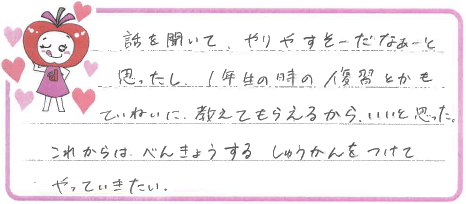 話を聞いて、やりやすそーだなぁーと
思ったし、1年生の時の復習とかも
ていねいに、教えてもらえるから、いいと思った。
これからは、べんきょうする しゅうかんをつけて
やっていきたい.